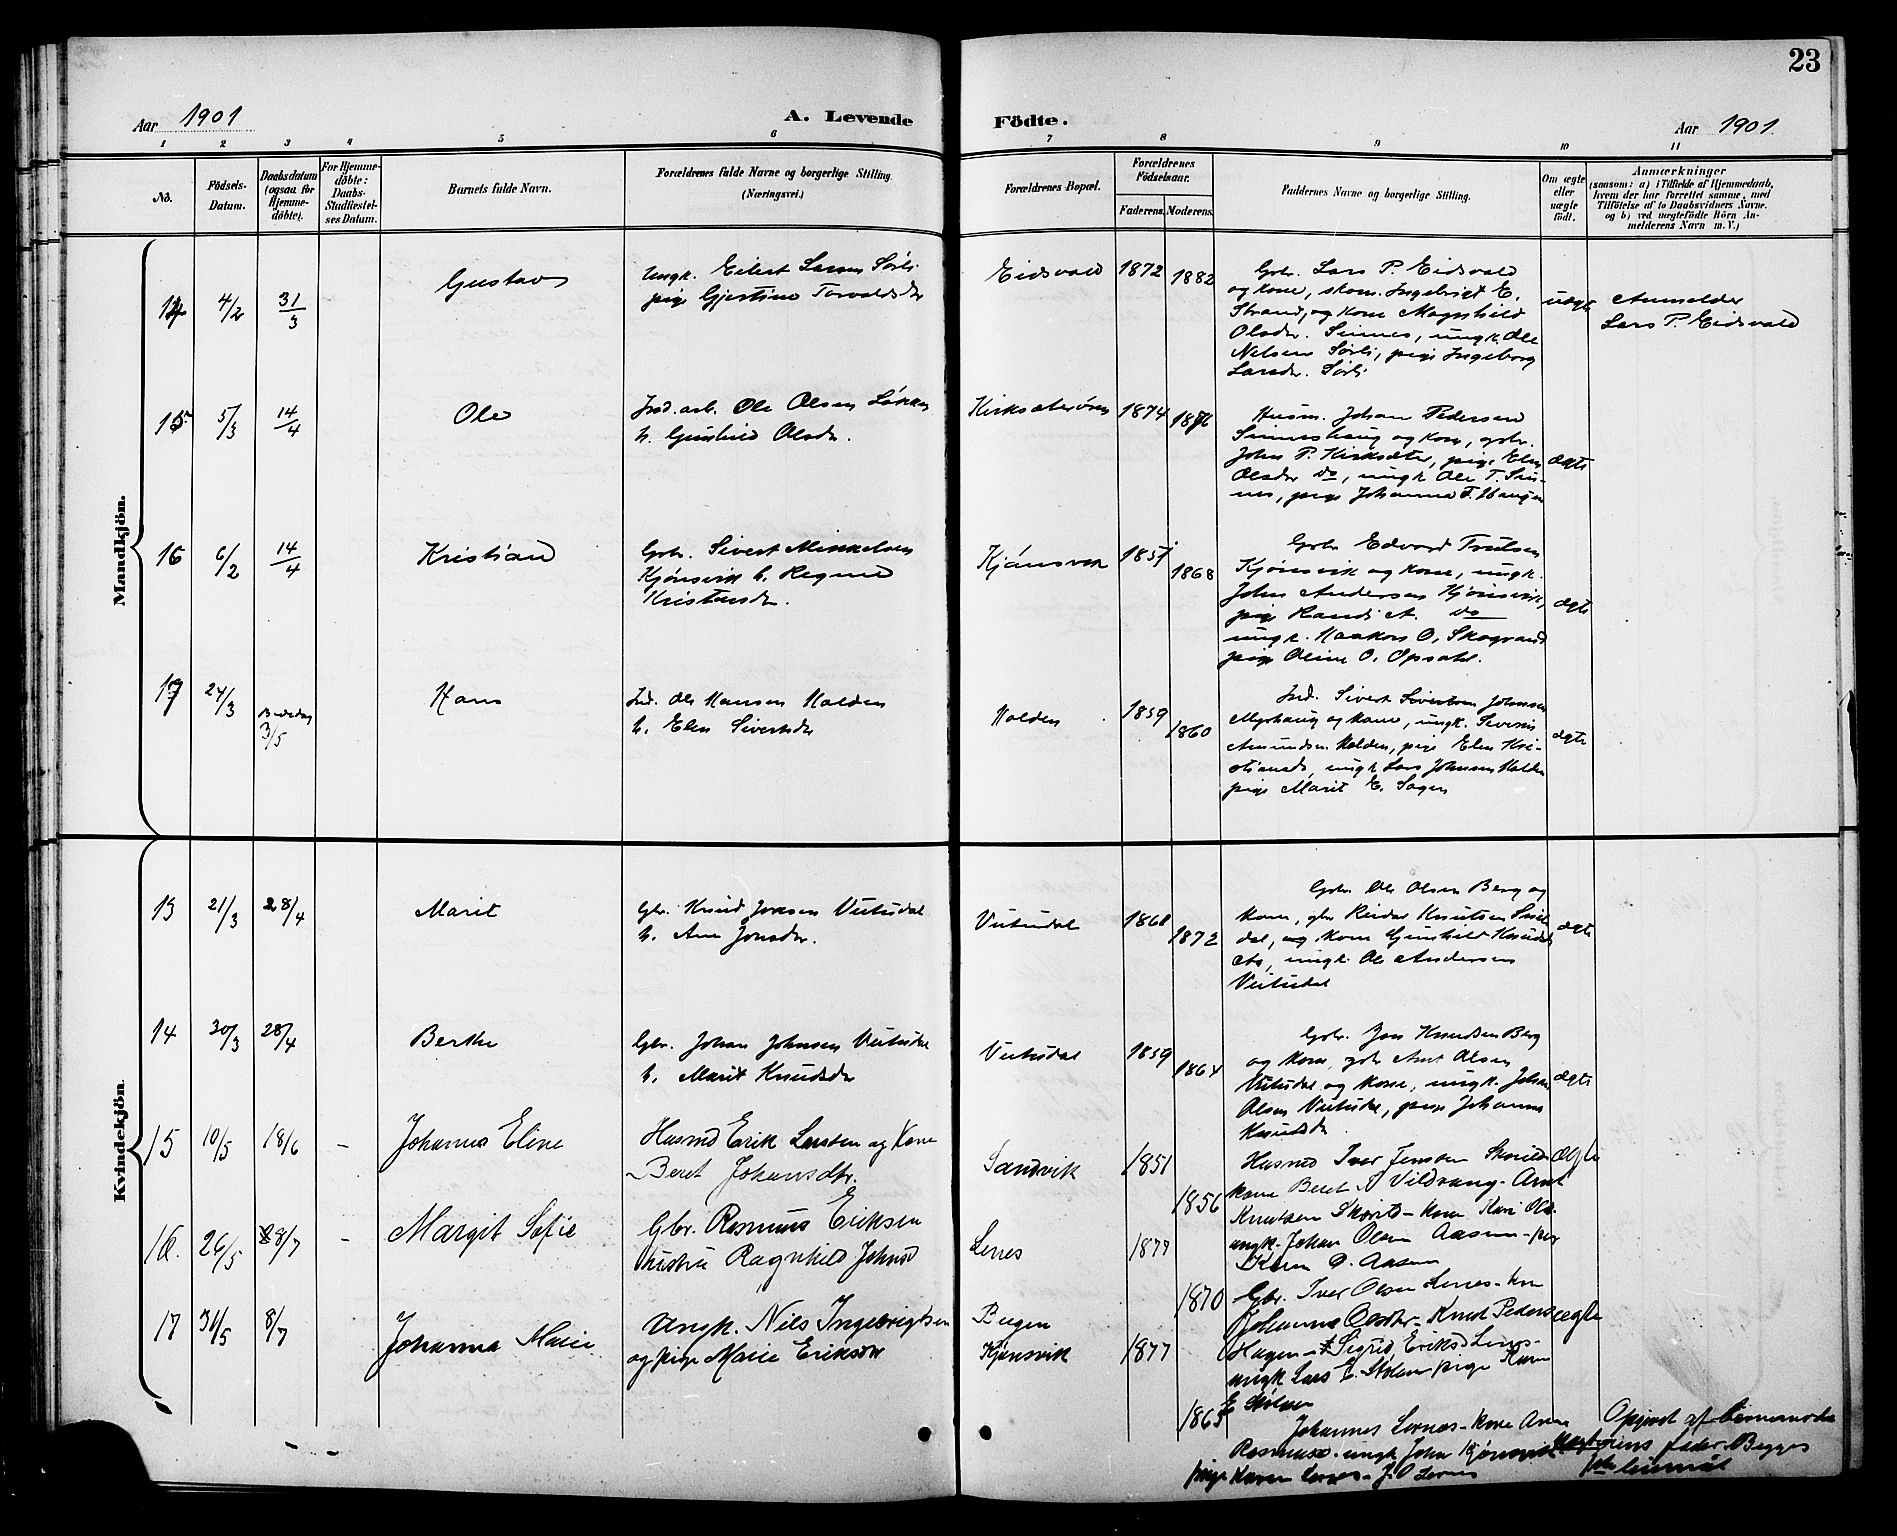 23
Aar 1901
A. Levende Födte.
Aar 1901.
1 2 3 4 5 6 7 8 9 10 11
No.
Födsels-
Datum.
Daabsdatum
(ogsaa for
Hjemme-
döbte).
For Hjemme-
døbte:
Daabs-
Stadfæstel-
ses Datum.
Barnets fulde Navn.
Forældrenes fulde Navne og borgerlige Stilling.
(Næringsvei.)
Forældrenes Bopæl.
Forældrenes
Födselsaar.
Faderens. Moderens.
Faddernes Navne og borgerlige Stilling.
Om ægte
eller
uægte
födt.
Anmærkninger
(saasom: a) i Tilfælde af Hjemmedaab,
hvem der har forrettet samme, med
Tilföielse af to Daabsvidners Navne.
og b) ved uægtefödte Börn An-
melderens Navn m. V.)
Mandkjön.
14 4/2 31/3
Gustav
Ungk. Eilert Larsen Sørli
pige Gjertine Torvaldsdr
Eidsvald 1872 1882
Gbr. Lars P. Eidsvald
og kone, skom. Ingebrigt E.
Strand, og kone Magnhild
Olsdr. Sinnes, ungk. Ole
Nelsen Sørli, pige Ingeborg
Larsdr. Sørli
uægte
Anmelder
Lars P. Eidsvald
15 5/3 14/4
Ole
Ind. arb. Ole Olsen Løkken
h. Gunhild Olsdr.
Kirksæterøren 1874 1876
Husm. Johan Pedersen
Sinneshaug og kone, gbr.
John P. Kirksæter, pige Elen
Olsdr do, ungk Ole T. Sin-
nes, pige Johanna T. Haugen
ægte
16 6/2 14/4
Kristian
Gbr. Sivert Mikkelsen
Kjönsvik h. Regine
Kristensdr.
Kjønsvik 1857 1868
Gbr Edvard Trulsen
Kjönsvik og kone, ungk.
John Andersen Kjönsvik,
pige Randi A. do
ungk. Haakon O. Skogrand
pige Oline O. Opsahl.
ægte
17 24/3 Bededag 3/5
Hans
Ind. Ole Hansen Halden
h. Elen Sivertsdr
Halden 1859 1860
Ind. Sivert Sivertsen Johnsen
Myrhaug og kone, ungk. Severin
Amundsen Halden, pige Elen Kri-
stiansdr, ungk Lars Johnsen Halden
pige Marit E. Sagen
ægte
Kvindekjön.
13 21/3 28/4
Marit
Gbr. Knud Jonsen Vutudal
h. Ane Jonsdr.
Vutudal 1868 1872
Gbr. Ole Olsen Berg og
kone, gbr Reidar Knutsen
dal, og kone Gunhild Knuds
ungk. Ole Andersen
Vutudal
ægte
14 30/3 28/4
Berthe
Gbr. Johan Johnsen Vutudal
h. Marit Knudsdr
Vutudal 1859 1864
Gbr. Jon Knudsen Berg
og kone, gbr Arnt Olsen
Vutudal og kone, ungk. Johan
Olsen Vutudal, pige Johanna
Knudsdr
ægte
15 10/5 18/6 -
Johanna Eline
Husmd Erik Larsten og Kone
Beret Johansdtr.
Sandvik 1851 1856
Husmd Iver Jensen
kone Beret Vildvang - Arnt
Knutsen - kone Kari Ols
ungk. Johan Olsen Aasen - pige
Karen O. Aasen
Ægte
16. 26/5 8/7 -
Margit Sofie
Gbr. Rasmus Eriksen
hustru Ragnhild Johnsd
Lernes 1877 1870
Gbr. Iver Olsen Lernes - kone
Johanna Olsdtr - Knut Peders
Hagen - Sigrid Eriksd Lernes -
ungk Lars E. Stölen pige Karen
E Stölen
ægte
17 31/5 8/7
Johanna Marie
Ungk. Nils Ingebrigtsen
og pige Marie Eriksdr
Bugen
Kjønsvik 1877 1865
Johannes Lernes - kone Anna
Rasmusd. ungk John Kjønsvik
pige Karen Lernes - J. O Lernes
Opgivet af barnemoder
faders Begges
leiermaal